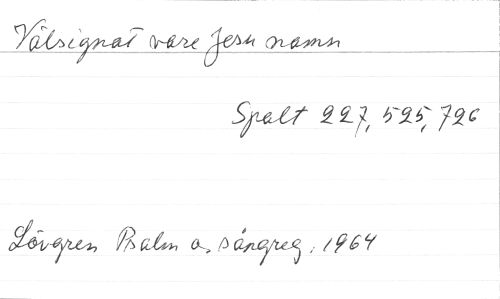 Välsignat vare Jesu namn
Spalt 227, 525, 726
Lövgren Psalm o. sångreg. 1964